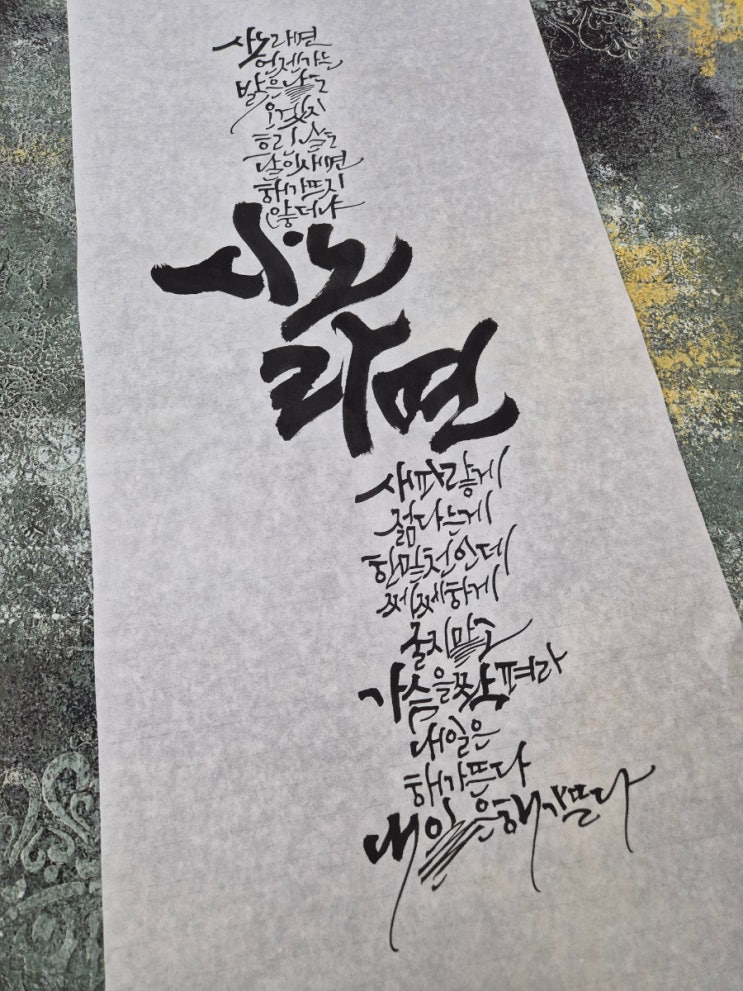 사노라면
언젠가는
밝은 날도
오겠지
흐린 날도
날이 새면
해가 뜨지
않더냐
사노
라면
새파랗게
젊다는 게
한밑천인데
쩨쩨하게
굴지 말고
가슴을 쫙 펴라
내일은
해가 뜬다
내일은 해가 뜬다